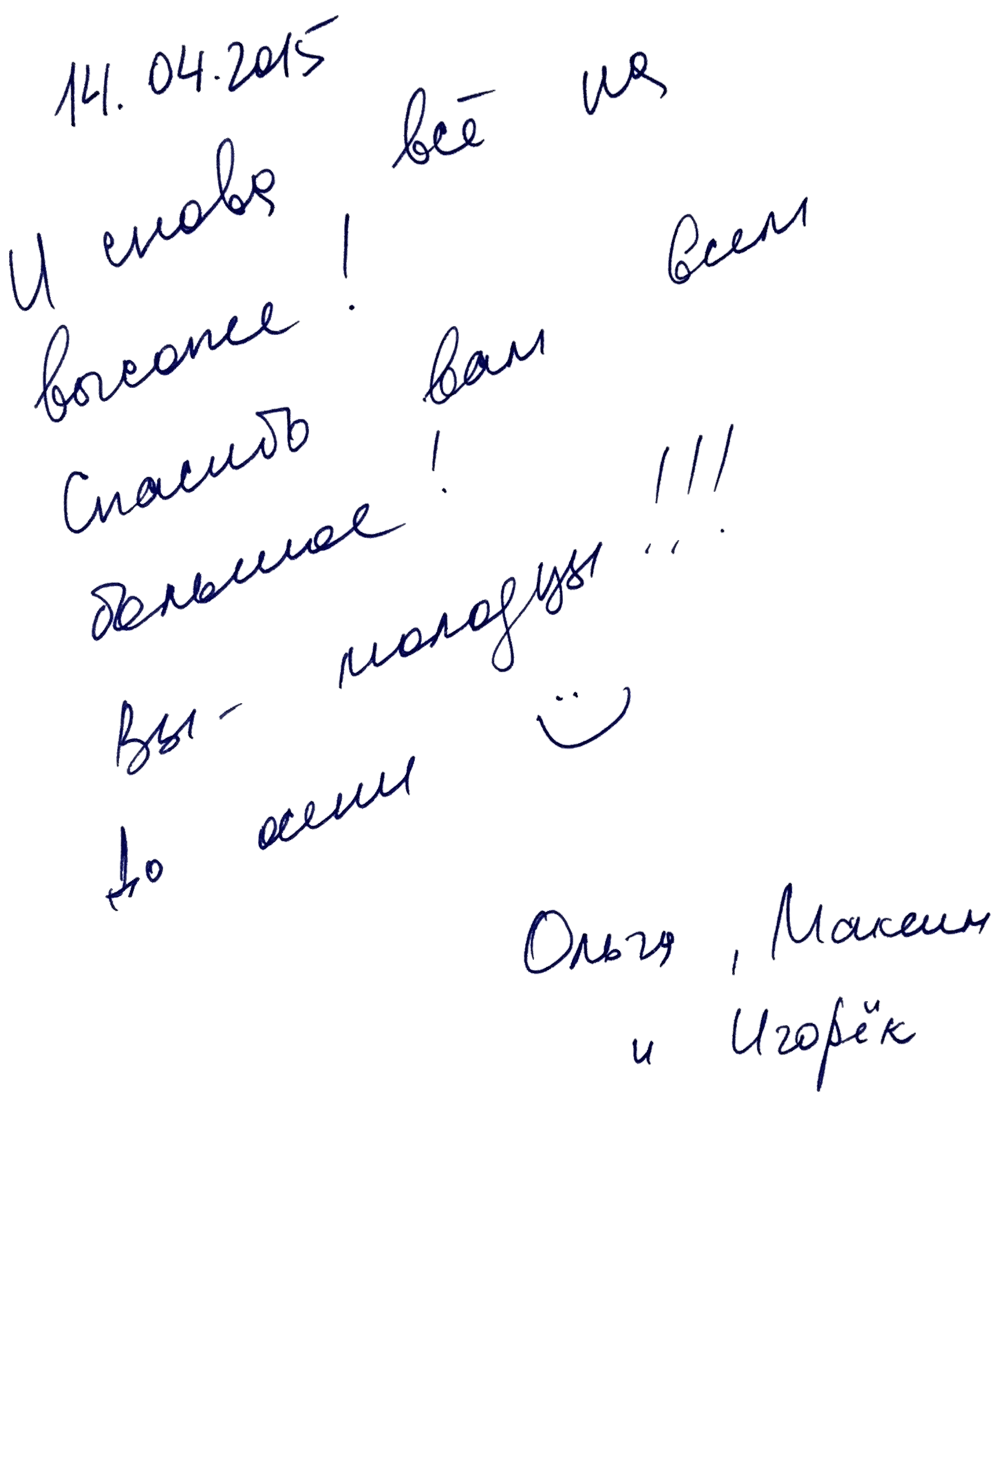 14.04.2015
И снова всё на
высоте!
Спасибо вам всем
большое!
Вы - молодцы!!!
До осени
Ольга, Максим
и Игорёк